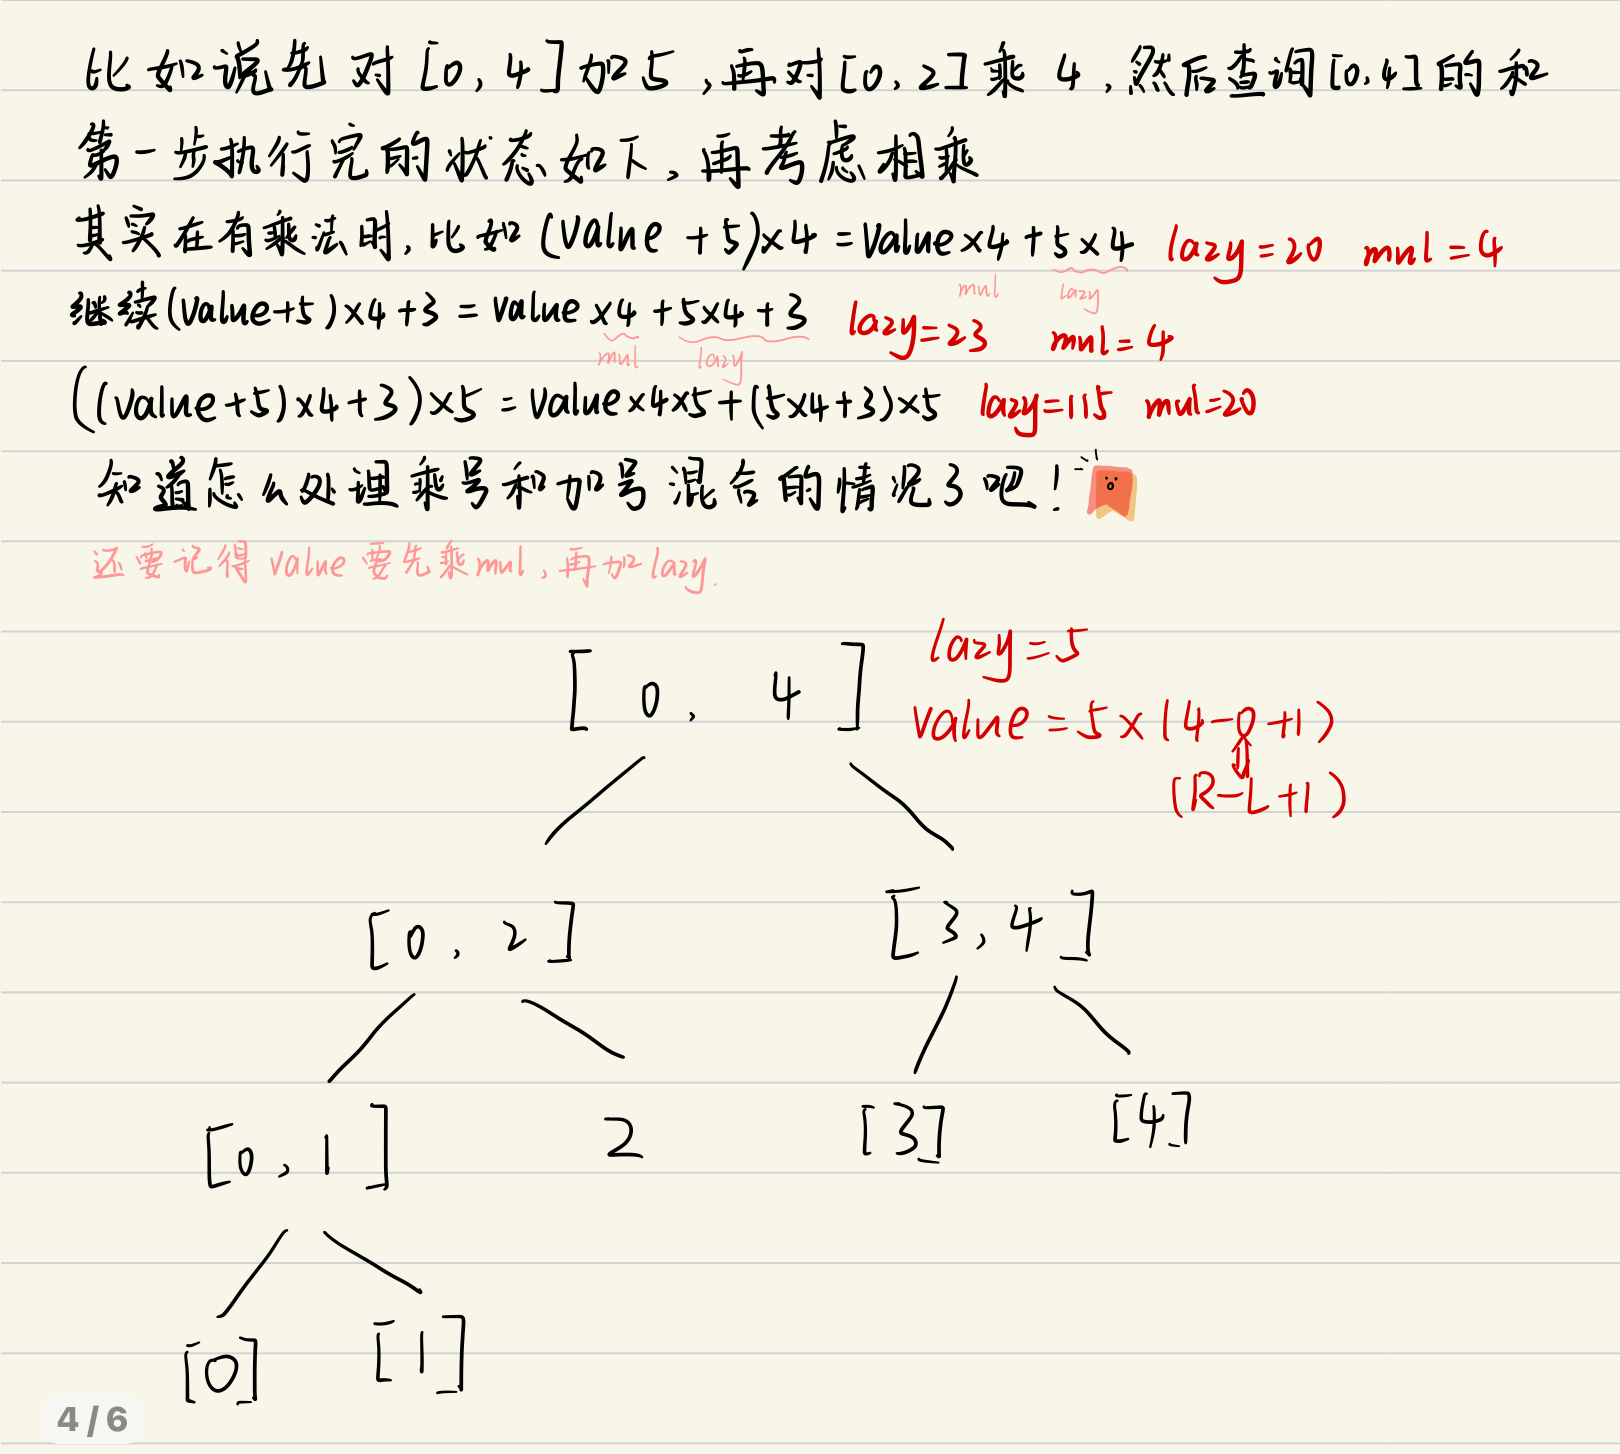 比如说先对[0,4]加5,再对[0,2]乘4,然后查询[0,4]的和
第一步执行完的状态如下,再考虑相乘
其实在有乘法时,比如(value+5)×4=value×4+5×4 lazy=20 mul=4
mul lazy
继续(value+5)×4+3=value×4+5×4+3 lazy=23 mul=4
mul lazy
((value+5)×4+3)×5=value×4×5+(5×4+3)×5 lazy=115 mul=20
知道怎么处理乘号和加号混合的情况了吧!
还要记得value要先乘mul,再加lazy.
[0,4] lazy=5
value=5×(4-0+1)
(R-L+1)
[0,2] [3,4]
[0,1] 2 [3] [4]
[0] [1]
4/6